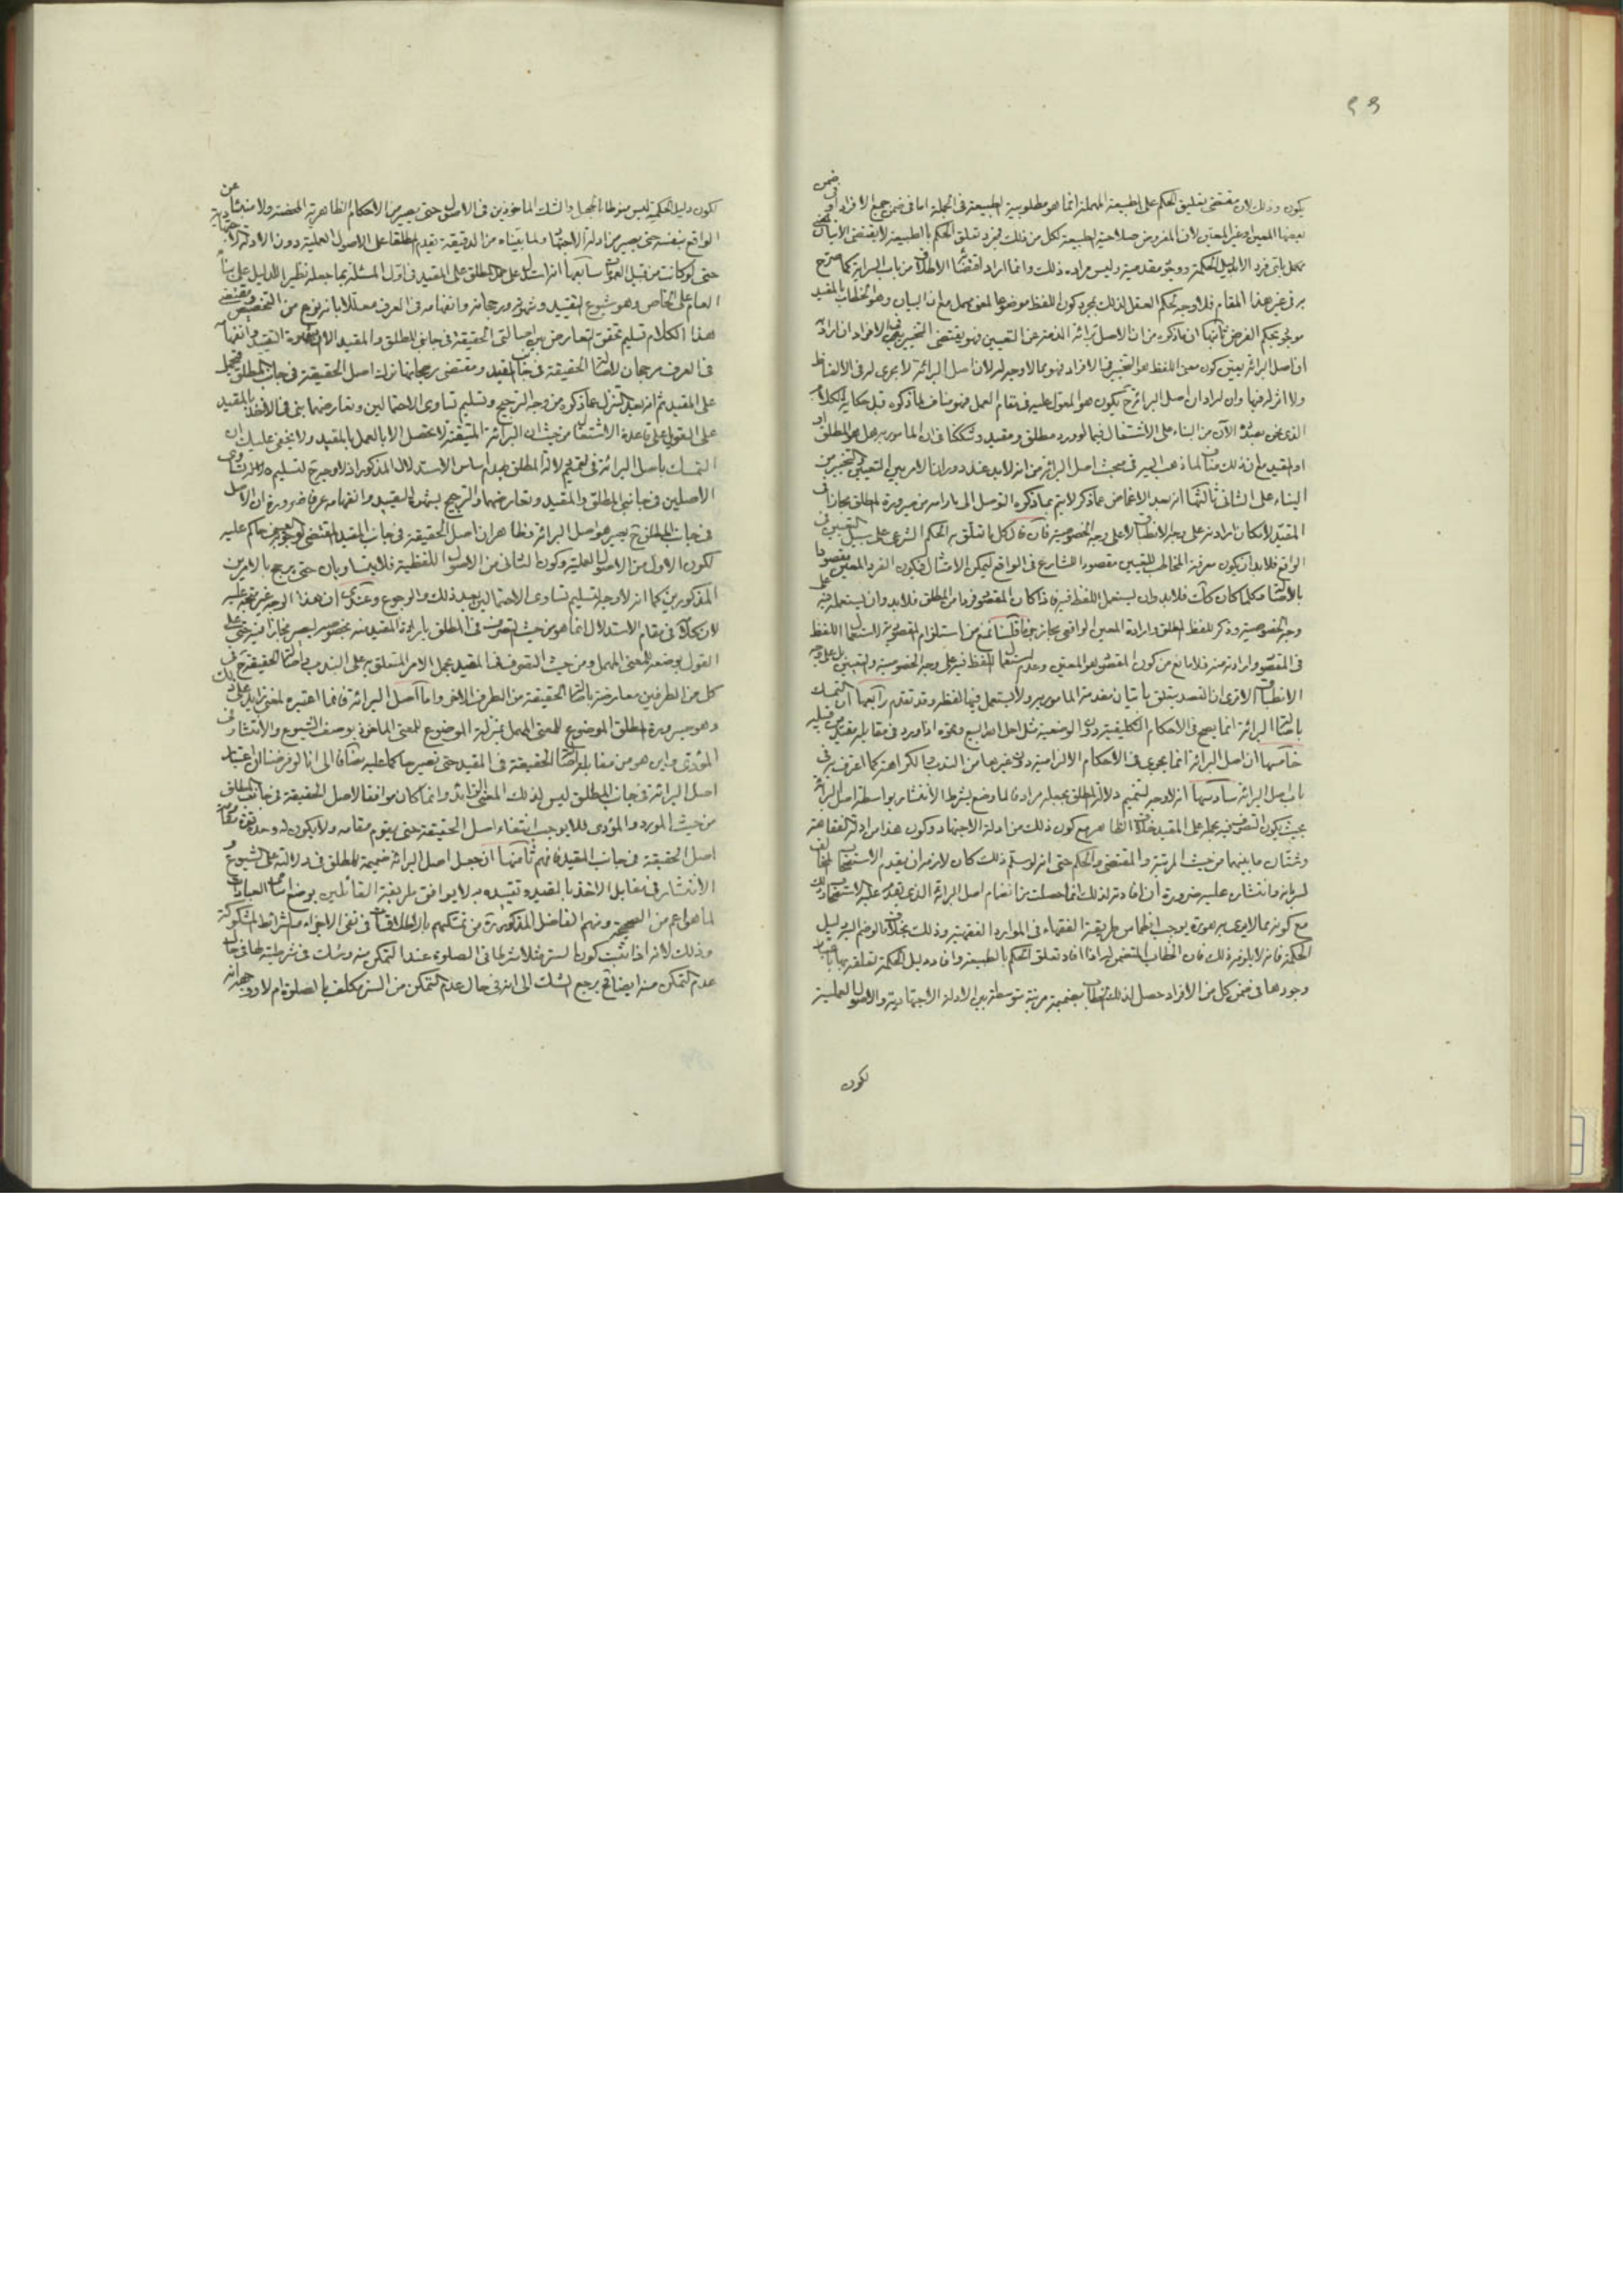 ٩٩
يكون وذلك لان مقتضى تعليق الحكم على الطبيعة المهملة انما هو مطلوبية الطبيعة في الجملة اما في ضمن جميع الافراد او في ضمن
بعضها المعين او غير المعين لان المفروض صلاحية الطبيعة لكل من ذلك فمجرد تعلق الحكم بالطبيعة لا يقتضي الاتيان
بكل باي فرد الا بدليل الحكمة ووجوه مقدمية وليس مراده ذلك وانما المراد اقتضاء الاطلاق من باب البراءة كما صرح
به في غير هذا المقام فلا وجه لحكم العقل لذلك بمجرد كون اللفظ موضوعا لمعنى مهمل مع ان البيان وهو الخطاب بالمقيد
موجود بحكم الفرض ثانيها ان ما ذكره من ان الاصل براءة الذمة عن التعيين فهو يقتضي التخيير بين الافراد ان اراد به
ان اصل البراءة يعين كون معنى اللفظ هو التخيير في الافراد فهو مما لا وجه له لان اصل البراءة لا يجري له في الالفاظ
ولا اثر له فيها وان اراد ان اصل البراءة ح يكون هو المعول عليه في مقام العمل فهو مناف لما ذكره قبل حكاية الكلام
الذي نحن بصدده الآن من البناء على الاشتغال فيما لو ورد مطلق ومقيد وشككنا في ان المامور به هل هو المطلق او
المقيد مع ان ذلك مناف لما ذهب اليه في مبحث اصل البراءة من انه لا بد عند دوران الامر بين التعيين والتخيير من
البناء على الثاني ثالثها انه بعد الاغماض عما ذكر لا يتم بما ذكره التوصل الى ما رامه من صيرورة المطلق مجازا في
المقيد لامكان ارادته على وجه الانطباق لا على وجه الخصوصية فان قال كل ما تعلق به الحكم الشرعي على سبيل التعيين في
الواقع فلا بد ان يكون معرفة المخاطب للتعيين مقصودا للشارع في الواقع ليمكن الامتثال فيكون الفرد المعين مقصودا
وجه الخصوصية وذكر للفظ المطلق وارادة المعين الواقعي مجاز جزما قلنا نمنع من استلزام المقصودية لاستعمال اللفظ
في المقصود وارادته منه فلا مانع من كون المقصود هو المعين وعدم استعمال اللفظ فيه على وجه الخصوصية والتعيين بل على وجه
الانطباق الا ترى ان القصد يتعلق باتيان مقدمة المامور به ولا يستعمل فيها لفظه وقد تقدم رابعها ان التمسك
باصالة البراءة انما يصح في الاحكام التكليفية دون الوضعية مثل احل الله البيع ونحوه اذا ورد في مقابله مقيد من قبيله
خامسها ان اصل البراءة انما يجري في الاحكام الالزامية دون غيرها من الندب والكراهة كما اعترف به في
باب اصل البراءة سادسها انه لا وجه لتتميم دلالة المطلق بجعله مرادفا لما وضع بشرط الانتشار بواسطة اصل البراءة
بحيث يكون التصرف فيه بحمله على المقيد خلاف الظاهر مع كون ذلك من ادلة الاجتهاد وكون هذا من ادلة الفقاهة
وشتان ما بينهما من حيث المرتبة والمقتضى والحكم حتى انه لو سلم ذلك كان لازمه ان يقدم الاستصحاب المخالف
لسريانه وانتشاره عليه ضرورة ان افادته لذلك انما حصلت من انضمام اصل البراءة الذي يقدم عليه الاستصحاب
مع كونه مما لا يدعى به هو ولا يوجب انطباس طريقة الفقهاء في الموارد الفقهية وذلك بخلاف ما لو ضم اليه دليل
الحكمة فانه لا يلزمه ذلك فان الخطاب المتضمن له اذا افاد تعلق الحكم بالطبيعة وافاد دليل الحكمة تعلقه بها باعتبار
وجودها في ضمن كل من الافراد حصل لذلك الخطاب بضميمته مرتبة متوسطة بين الادلة الاجتهادية والاصول العملية
لكون
لكون دليل الحكمة ليس منوطا بالجهل والشك الماخوذين في الاصول حتى يصير من الاحكام الظاهرية المحضة ولا منبئا عن
الواقع بنفسه حتى يصير من ادلة الاجتهاد ولما بيناه من الدقيقة تقدم المطلق على الاصول العملية دون الادلة الاجتهادية
حتى لو كانت من قبيل العموم سابعها انه استدل على حمل المطلق على المقيد في اول المسئلة بما جعله نظير الدليل على بناء
العام على الخاص وهو شيوع التقييد وشهرته ورجحانه وانفهامه في العرف معللا بانه نوع من التخصيص ومقتضى
هذا الكلام تسليم تحقق التعارض بين اصالتي الحقيقة في جانبي المطلق والمقيد الا ان شهرة التقييد وانفهامه
في العرف مرجحان لاصالة الحقيقة في جانب المقيد ومقتضى رجحانها زوال اصل الحقيقة في جانب المطلق فيحمل
على المقيد ثم انه بعد التنزل عما ذكره من وجه الترجيح وتسليم تساوي الاحتمالين وتعارضهما بنى في الاخذ بالمقيد
على التعويل على قاعدة الاشتغال من حيث ان البراءة المتيقنة لا تحصل الا بالعمل بالمقيد ولا يخفى عليك ان
التمسك باصل البراءة في تتميم دلالة المطلق يهدم اساس الاستدلال المذكور اذ لا وجه ح لتسليم تساوي
الاصلين في جانبي المطلق والمقيد وتعارضهما والترجيح بشهرة التقييد وانفهامه عرفا ضرورة ان الاصل
في جانب المطلق ح يصير هو اصل البراءة وظاهر ان اصل الحقيقة في جانب المقيد المقتضي لوجوبه حاكم عليه
لكون الاول من الاصول العملية وكون الثاني من الاصول اللفظية فلا يتساويان حتى يرجح بالامرين
المذكورين كما انه لا وجه لتسليم تساوي الاحتمالين بعد ذلك والرجوع وعندي ان هذا الوجه غير متجه عليه
لان كلامه في مقام الاستدلال انما هو من حيث التصرف في المطلق بارادة المقيد منه بخصوصه ليصير مجازا فيه حتى على
القول بوضعه للمعنى المهمل ومن حيث التصرف في المقيد بحمل الامر المتعلق به على الندب واصالة الحقيقة ح في
كل من الطرفين معارضة باصالة الحقيقة من الطرف الاخر واما اصل البراءة فانما اعتبره لمعنى زائد على ذلك
وهو صيرورة المطلق الموضوع للمعنى المهمل بمنزلة الموضوع للمعنى الماخوذ بوصف الشيوع والانتشار في
المؤدى واين هو من مقابلة اصالة الحقيقة في المقيد حتى تصير حاكما عليه مضافا الى انا لو فرضنا ان اعتبار
اصل البراءة في جانب المطلق ليس لذلك المعنى الزائد وانما كان موافقا لاصل الحقيقة في جانب المطلق
من حيث المورد والمؤدى فلا يوجب انتفاء اصل الحقيقة حتى يقوم مقامه ولا يكون له وحده
اصل الحقيقة في جانب المقيد فافهم ثامنها ان جعل اصل البراءة ضميمة للمطلق في دلالته على الشيوع و
الانتشار في مقابل الاخذ بالمقيد وتقييده به لا يوافق طريقة القائلين بوضع اسامي العبادات
لما هو اعم من الصحيحة ومنهم الفاضل المذكور ره من تمسكهم بالاطلاقات في نفي الاجزاء والشرائط المشكوكة
وذلك لانه اذا ثبت كون الستر مثلا شرطا في الصلوة عند التمكن منه وشك في شرطيته لها في حال
عدم التمكن منه ايضا ح يرجع الشك الى انه في حال عدم التمكن من الستر مكلف بالصلوة ام لا ووجهه انه